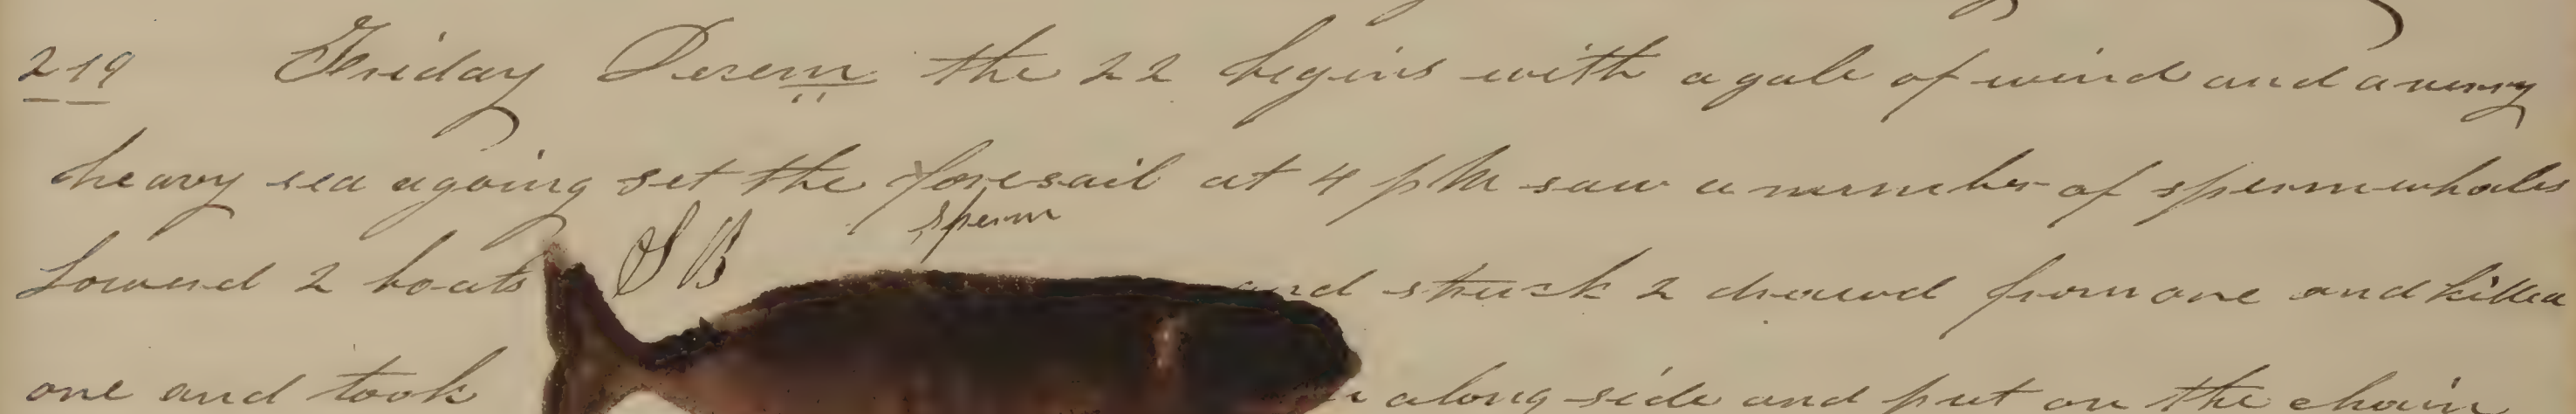 219 Friday Desem the 22 begins with a gale of wind and a verry
heavy sea agoing set the foresail at 4 p M saw a number of sperm whales
S B sperm
Lowerd 2 boats and struck 2 drawd from one and killed
one and took along side and put on the chain